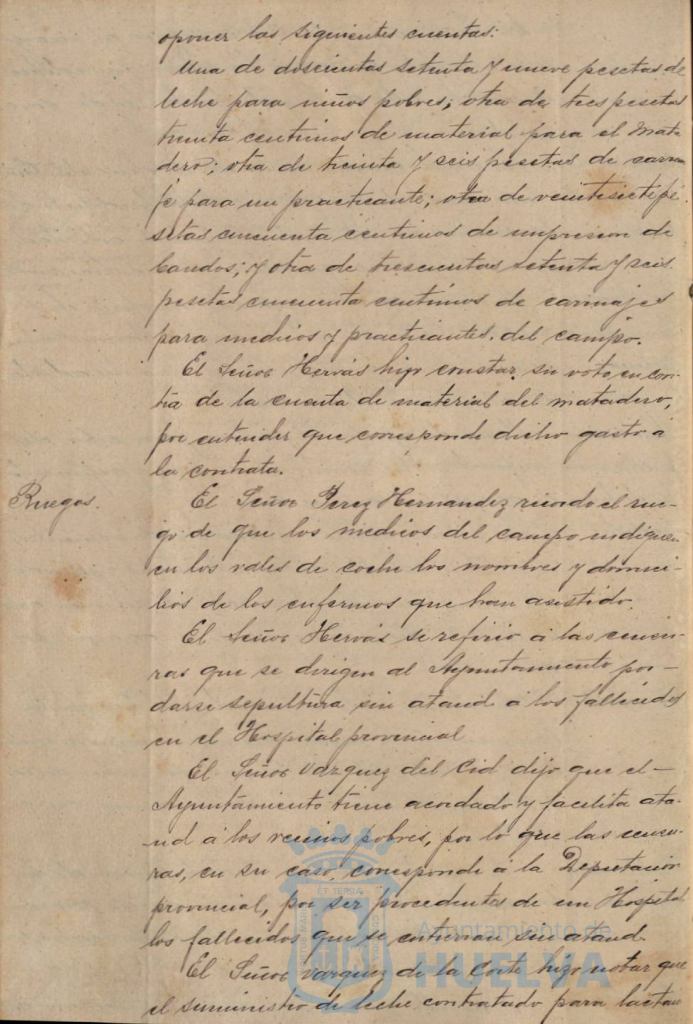 oponer las siguientes cuentas:
Una de doscientas setenta y nueve pesetas de
leche para niños pobres; otra de tres pesetas
treinta centimos de material para el Mata-
dero; otra de treinta y seis pesetas de carrua-
je para un practicante; otra de veintisiete pe-
setas cincuenta centimos de impresion de
bandos; y otra de trescientas setenta y seis
pesetas cincuenta centimos de carruajes
para medicos y practicantes del campo.
El Señor Hervás hizo constar su voto en con-
tra de la cuenta de material del matadero,
por entender que corresponde dicho gasto á
la contrata.
Ruegos.
El Señor Perez Hernandez recordo el rue-
go de que los medicos del campo indiquen
en los vales de coche los nombres y domici-
lios de los enfermos que han asistido.
El Señor Hervás se refirió á las censu-
ras que se dirigen al Ayuntamiento por
darse sepultura sin ataud á los fallecidos
en el Hospital provincial
El Señor Vazquez del Cid dijo que el
Ayuntamiento tiene acordado y facilita ata-
ud á los vecinos pobres, por lo que las censu-
ras, en su caso, corresponde á la Deputacion
provincial, por ser procedentes de un Hospital
los fallecidos que se entierran sin ataud.
El Señor Vazquez de la Corte hizo notar que
el suministro de leche contratado para lactan
Ayuntamiento de
HUELVA